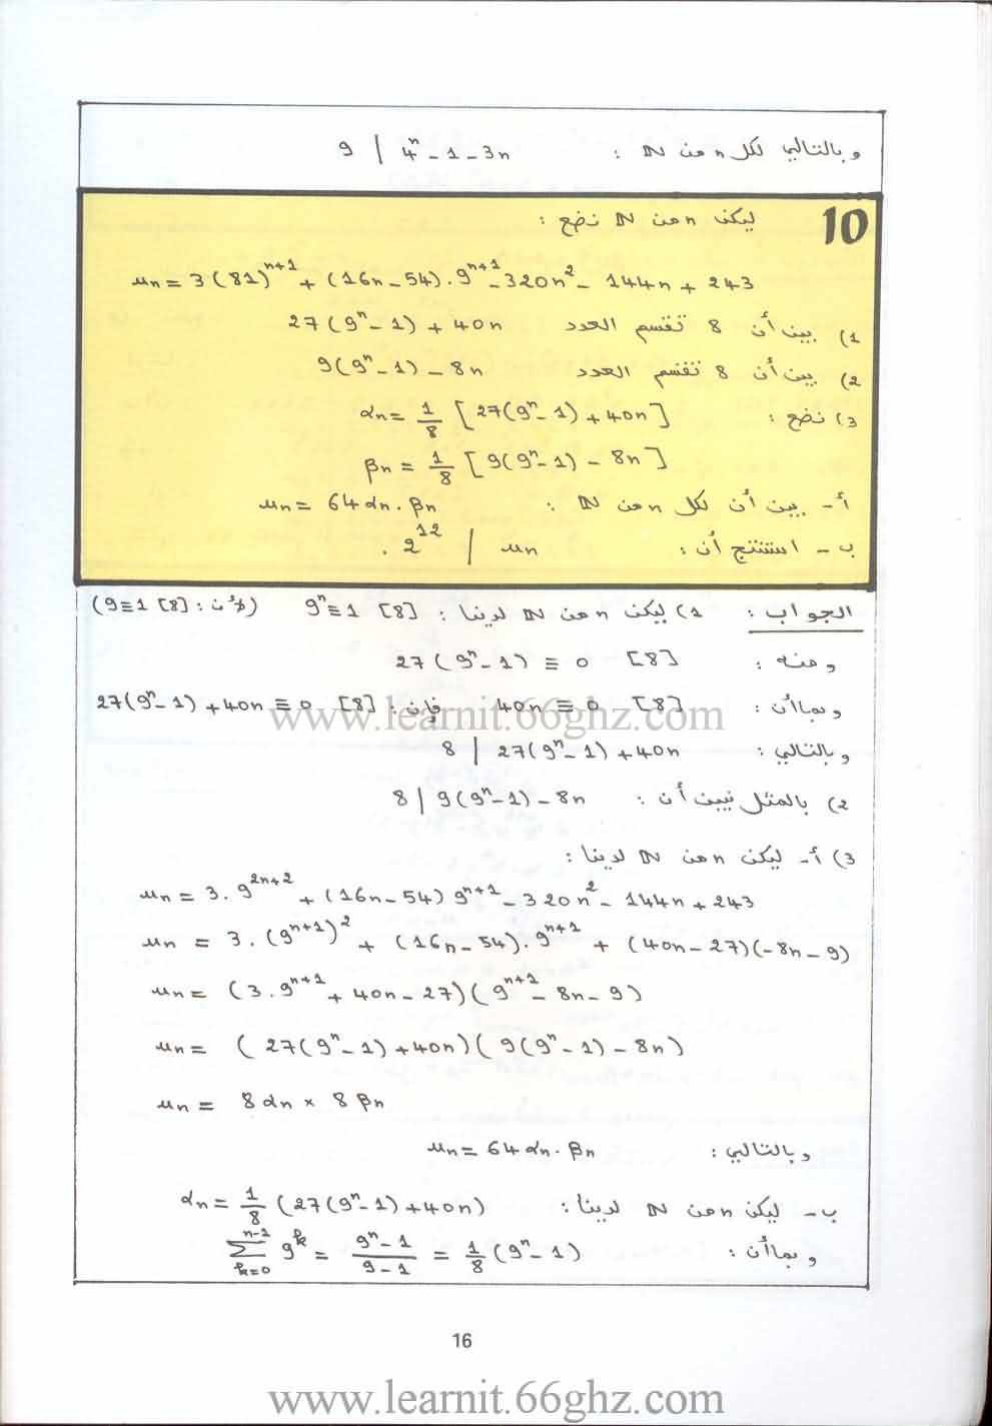 وبالتالي لكل n من ℕ : 9 | 4ⁿ - 1 - 3n
10
ليكن n من ℕ نضع :
uₙ = 3(81)ⁿ⁺¹ + (16n - 54).9ⁿ⁺¹ - 320n² - 144n + 243
1) بين أن 8 تقسم العدد 27(9ⁿ - 1) + 40n
2) بين أن 8 تقسم العدد 9(9ⁿ - 1) - 8n
3) نضع : αₙ = 1/8 [27(9ⁿ - 1) + 40n]
βₙ = 1/8 [9(9ⁿ - 1) - 8n]
أ - بين أن لكل n من ℕ : uₙ = 64 αₙ . βₙ
ب - استنتج أن : 2¹² | uₙ .
الجواب : 1) ليكن n من ℕ لدينا : 9ⁿ ≡ 1 [8] (لأن : 9 ≡ 1 [8])
ومنه : 27(9ⁿ - 1) ≡ 0 [8]
وبما أن : 40n ≡ 0 [8] فإن : 27(9ⁿ - 1) + 40n ≡ 0 [8]
www.learnit.66ghz.com
وبالتالي : 8 | 27(9ⁿ - 1) + 40n
2) بالمثل نبين أن : 8 | 9(9ⁿ - 1) - 8n
3) أ - ليكن n من ℕ لدينا :
uₙ = 3.9²ⁿ⁺² + (16n - 54) 9ⁿ⁺¹ - 320n² - 144n + 243
uₙ = 3.(9ⁿ⁺¹)² + (16n - 54).9ⁿ⁺¹ + (40n - 27)(-8n - 9)
uₙ = (3.9ⁿ⁺¹ + 40n - 27)(9ⁿ⁺¹ - 8n - 9)
uₙ = (27(9ⁿ - 1) + 40n)(9(9ⁿ - 1) - 8n)
uₙ = 8αₙ × 8βₙ
وبالتالي : uₙ = 64 αₙ . βₙ
ب - ليكن n من ℕ لدينا : αₙ = 1/8 (27(9ⁿ - 1) + 40n)
وبما أن : ∑_{k=0}^{n-1} 9ᵏ = (9ⁿ - 1)/(9 - 1) = 1/8 (9ⁿ - 1)
16
www.learnit.66ghz.com